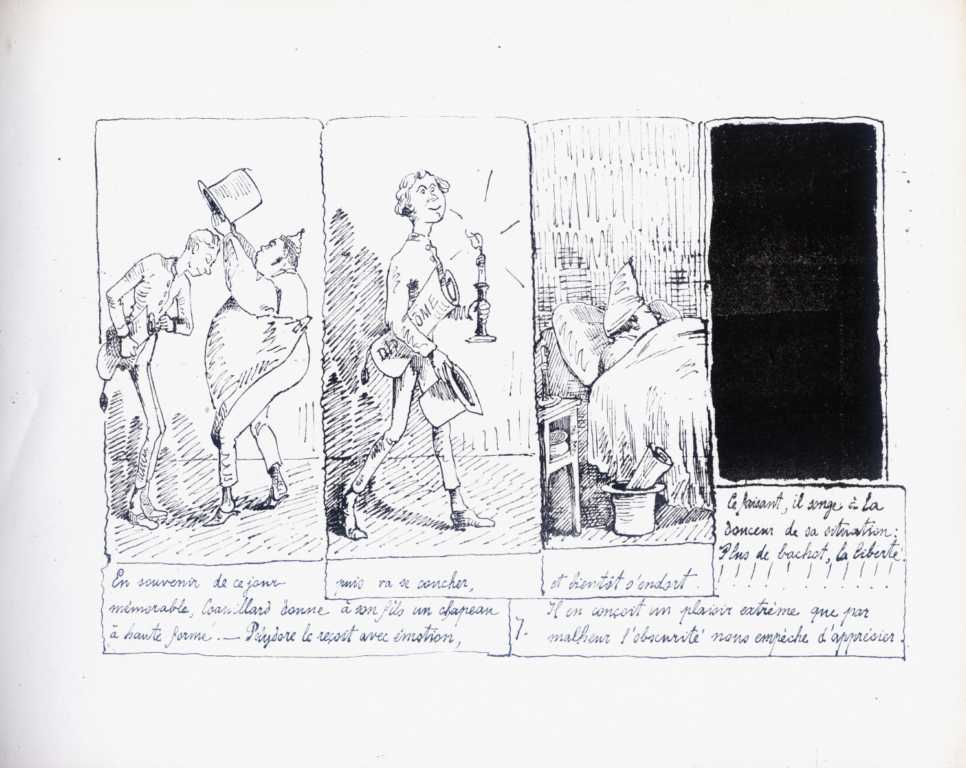 En souvenir de ce jour
mémorable, Couillard donne à son fils un chapeau
à haute forme. — Polydore le reçoit avec émotion,
puis va se coucher,
et bientôt s'endort
Ce faisant, il songe à la
douceur de sa situation:
Plus de bachot, la liberté.
7.
Il en conçoit un plaisir extrême que par
malheur l'obscurité nous empêche d'apprécier.